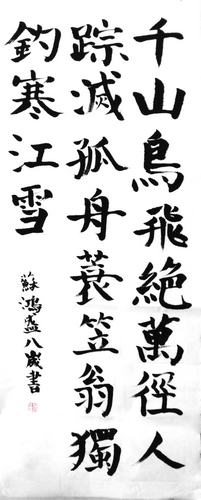 千山鳥飛絶萬徑人
踪滅孤舟蓑笠翁獨
釣寒江雪
蘇鴻盛八歲書